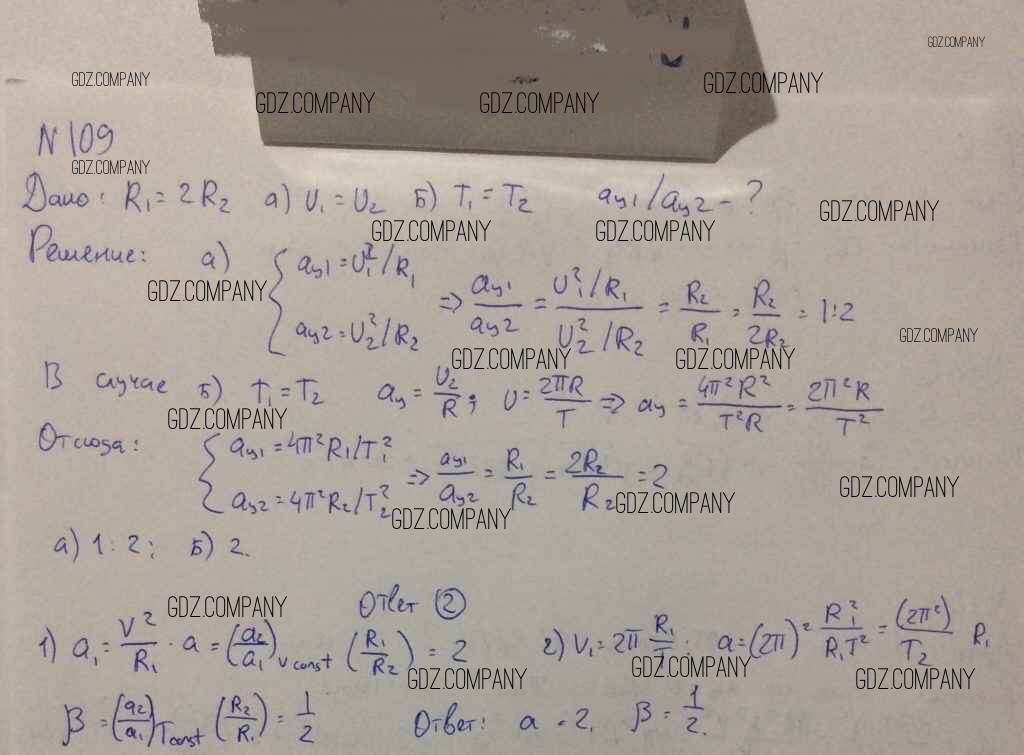 GDZ.COMPANY
GDZ.COMPANY GDZ.COMPANY GDZ.COMPANY GDZ.COMPANY
N 109
GDZ.COMPANY
Дано: R₁ = 2R₂ а) υ₁ = υ₂ Б) T₁ = T₂ aц₁/aц₂ - ?
GDZ.COMPANY
GDZ.COMPANY GDZ.COMPANY
Решение: а) { aц1 = υ₁²/R₁
aц2 = υ₂²/R₂ => aц1/aц2 = (υ₁²/R₁)/(υ₂²/R₂) = R₂/R₁ = R₂/2R₂ = 1:2
GDZ.COMPANY GDZ.COMPANY
GDZ.COMPANY GDZ.COMPANY
В случае Б) T₁ = T₂ aц = υ₂/R; υ = 2πR/T => aц = 4π²R²/T²R = 2π²R/T²
GDZ.COMPANY
Отсюда: { aц1 = 4π²R₁/T₁²
aц2 = 4π²R₂/T₂² => aц1/aц2 = R₁/R₂ = 2R₂/R₂ = 2
GDZ.COMPANY GDZ.COMPANY GDZ.COMPANY
а) 1:2; Б) 2.
GDZ.COMPANY Ответ ②
1) a₁ = V²/R₁ · a = (a₂/a₁)v const (R₁/R₂) = 2 2) V₁ = 2π R₁/T; a = (2π)² R₁²/R₁T² = (2π²)/T₂ R₁
GDZ.COMPANY GDZ.COMPANY GDZ.COMPANY
β = (a₂/a₁)Tconst (R₂/R₁) = 1/2 Ответ: a = 2, β = 1/2.